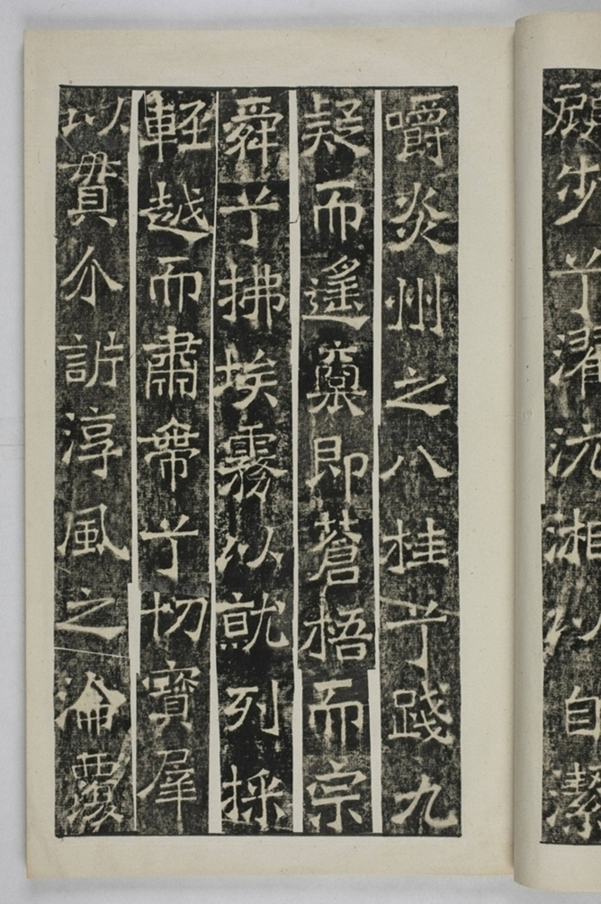 顧步兮濯沅湘以自潔
嚼炎州之八桂兮踐九
疑而遙稟即蒼梧而宗
舜兮拂埃霧以就列採
輕越而肅帶兮切寶犀
以貫介訴淳風之淪覆